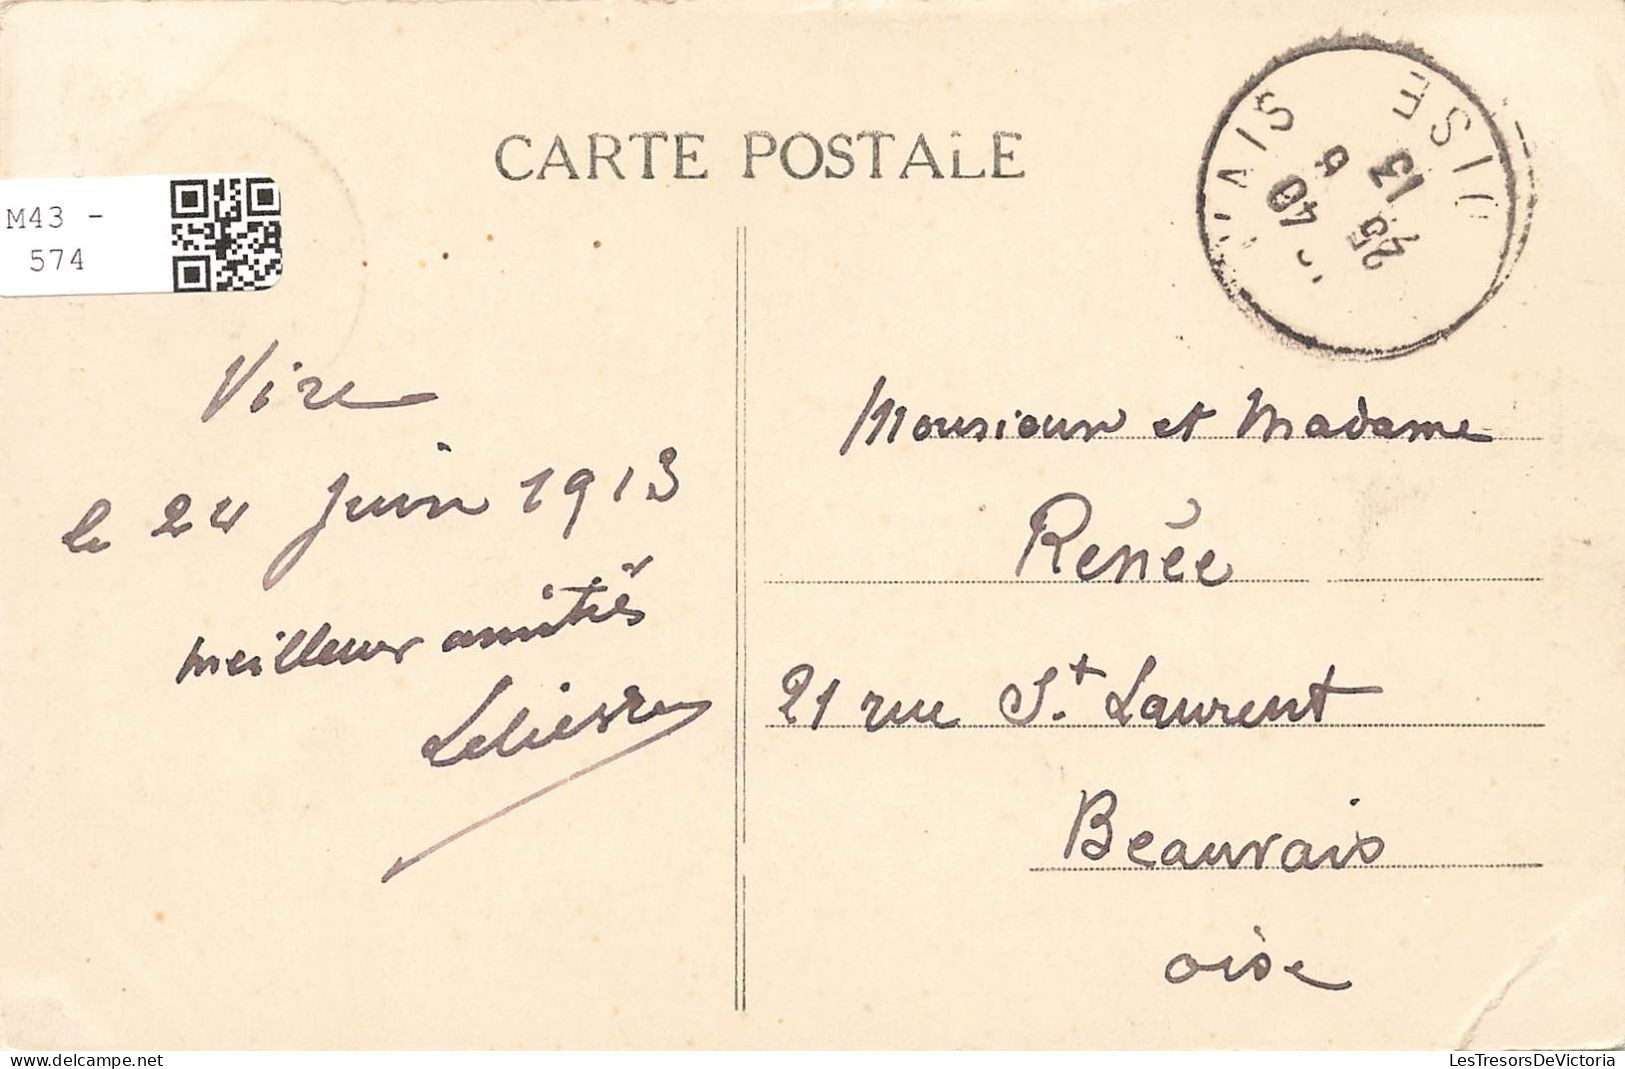 CARTE POSTALE
M43 -
574
Vire
le 24 Juin 1913
meilleur amitiés
Lelièvre
AIS OISE
13
25
6
40
Monsieur et Madame
Renée
21 rue St. Laurent
Beauvais
oise
delcampe.net
LesTresorsDeVictoria